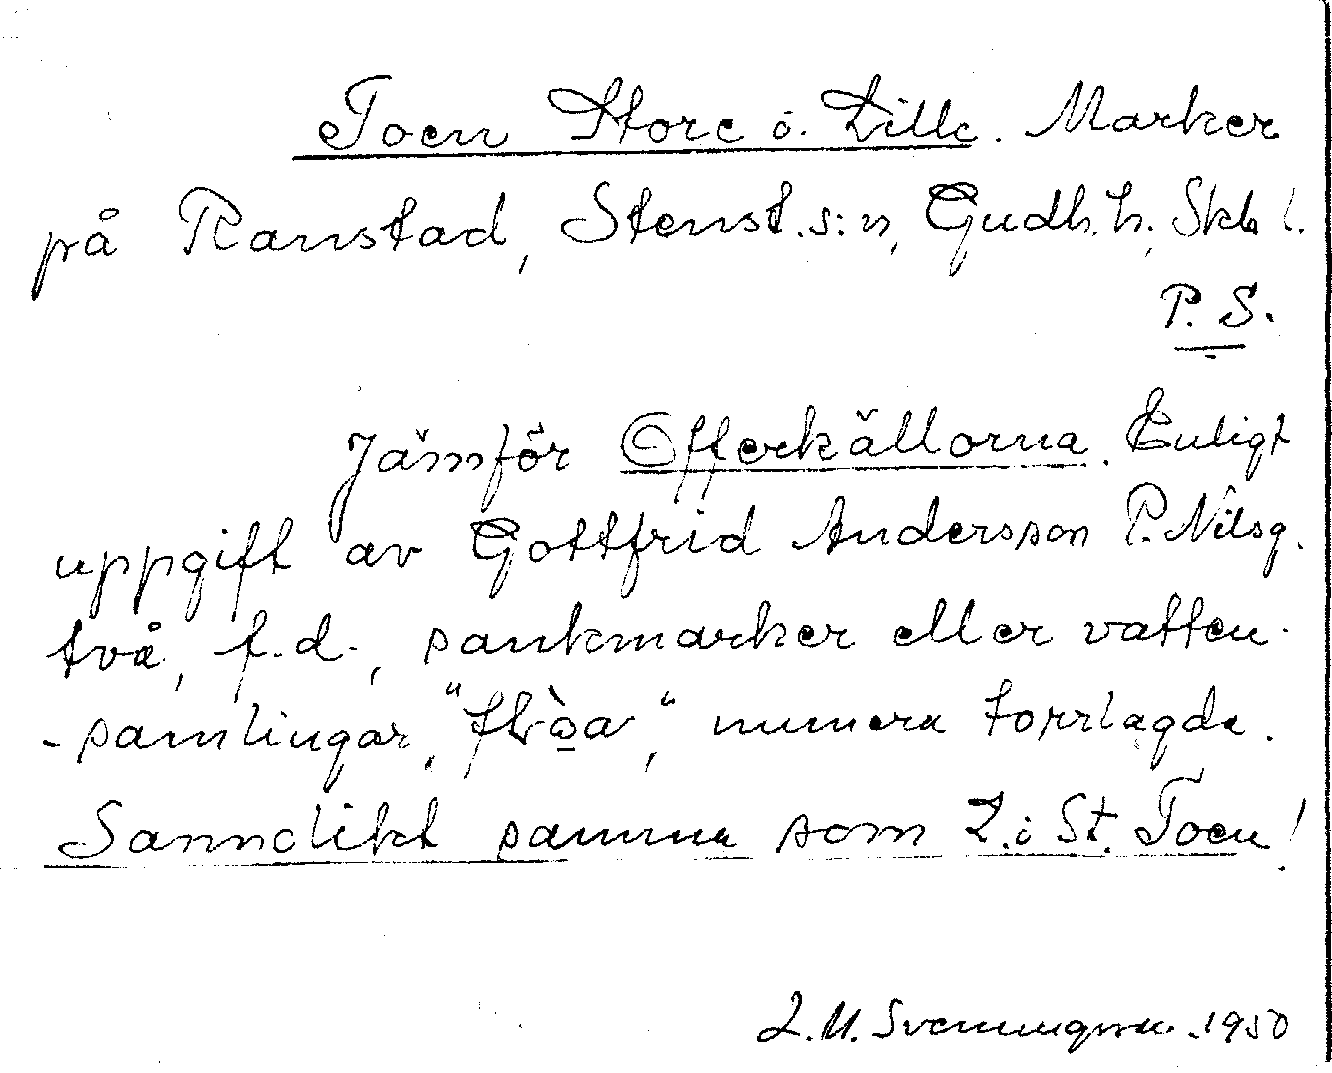 Toen Store o. Lille. Marker
på Ranstad, Stenst. s:n, Gudh. h. Skb l.
P. S.
Jämför Offerkällorna. Enligt
uppgift av Gottfrid Andersson P. Nilsg.
två, f.d., sankmarker eller vatten-
-samlingar, "flòa", numera torrlagda.
Sannolikt samma som L. o St. Toen!
L. M. Svenningsson. 1950